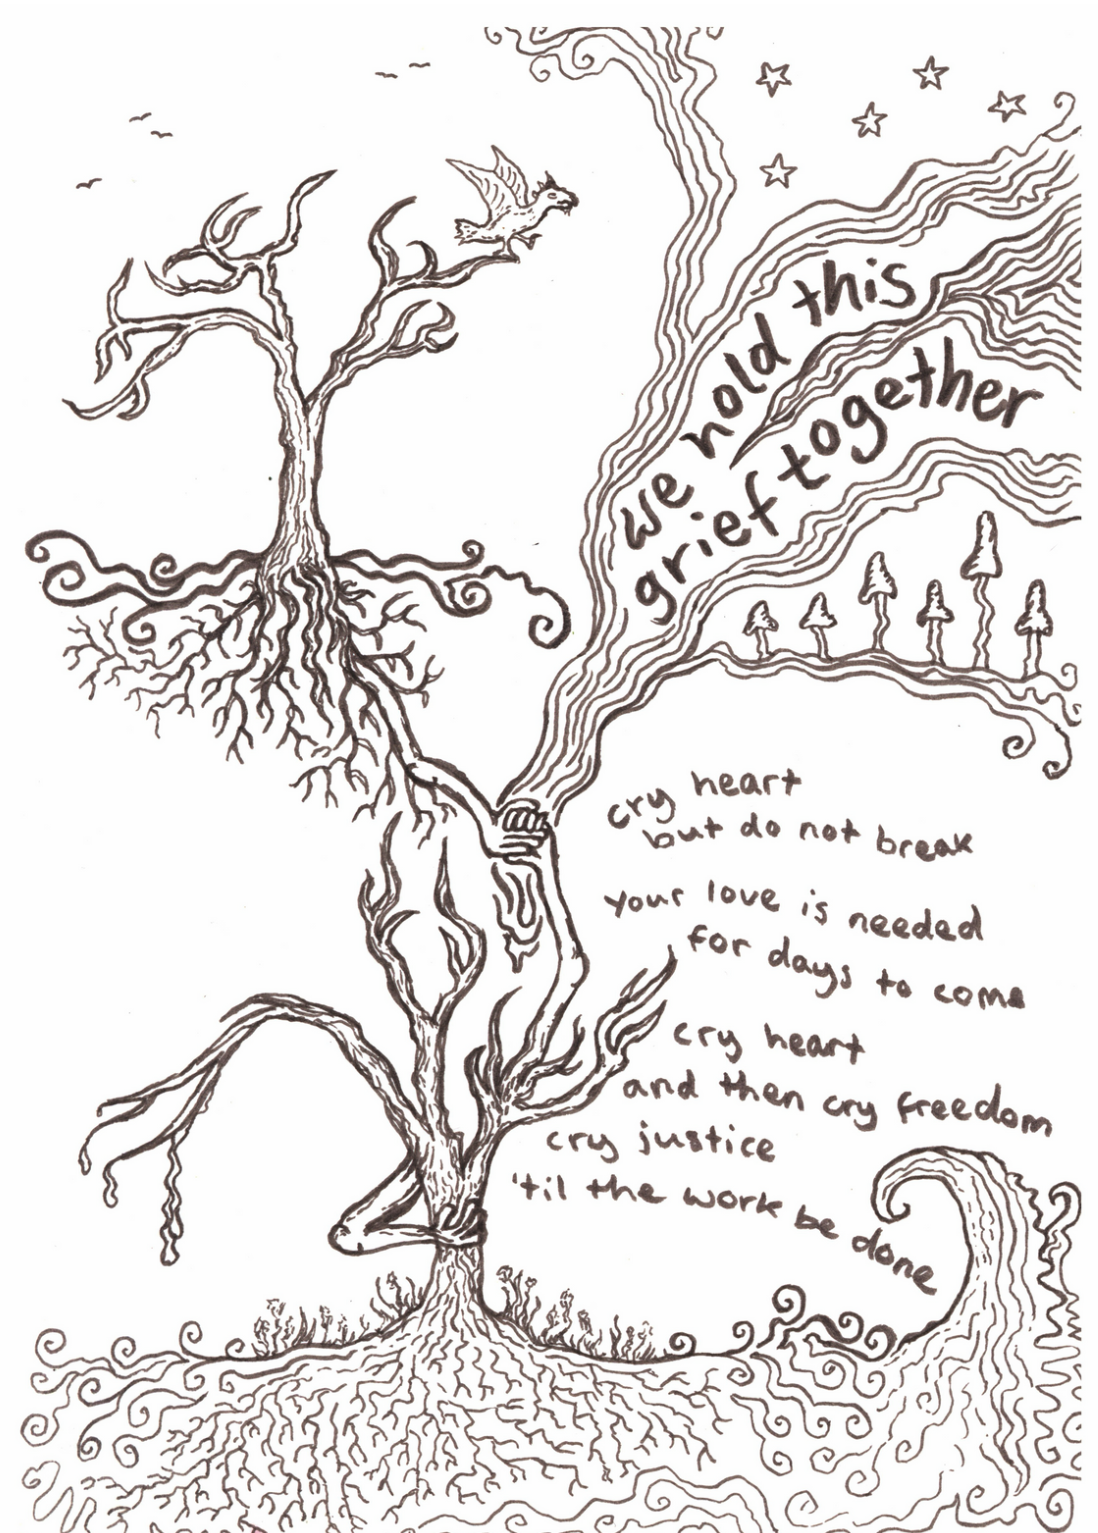 we hold this
grief together
cry heart
but do not break
your love is needed
for days to come
cry heart
and then cry freedom
cry justice
'til the work be done